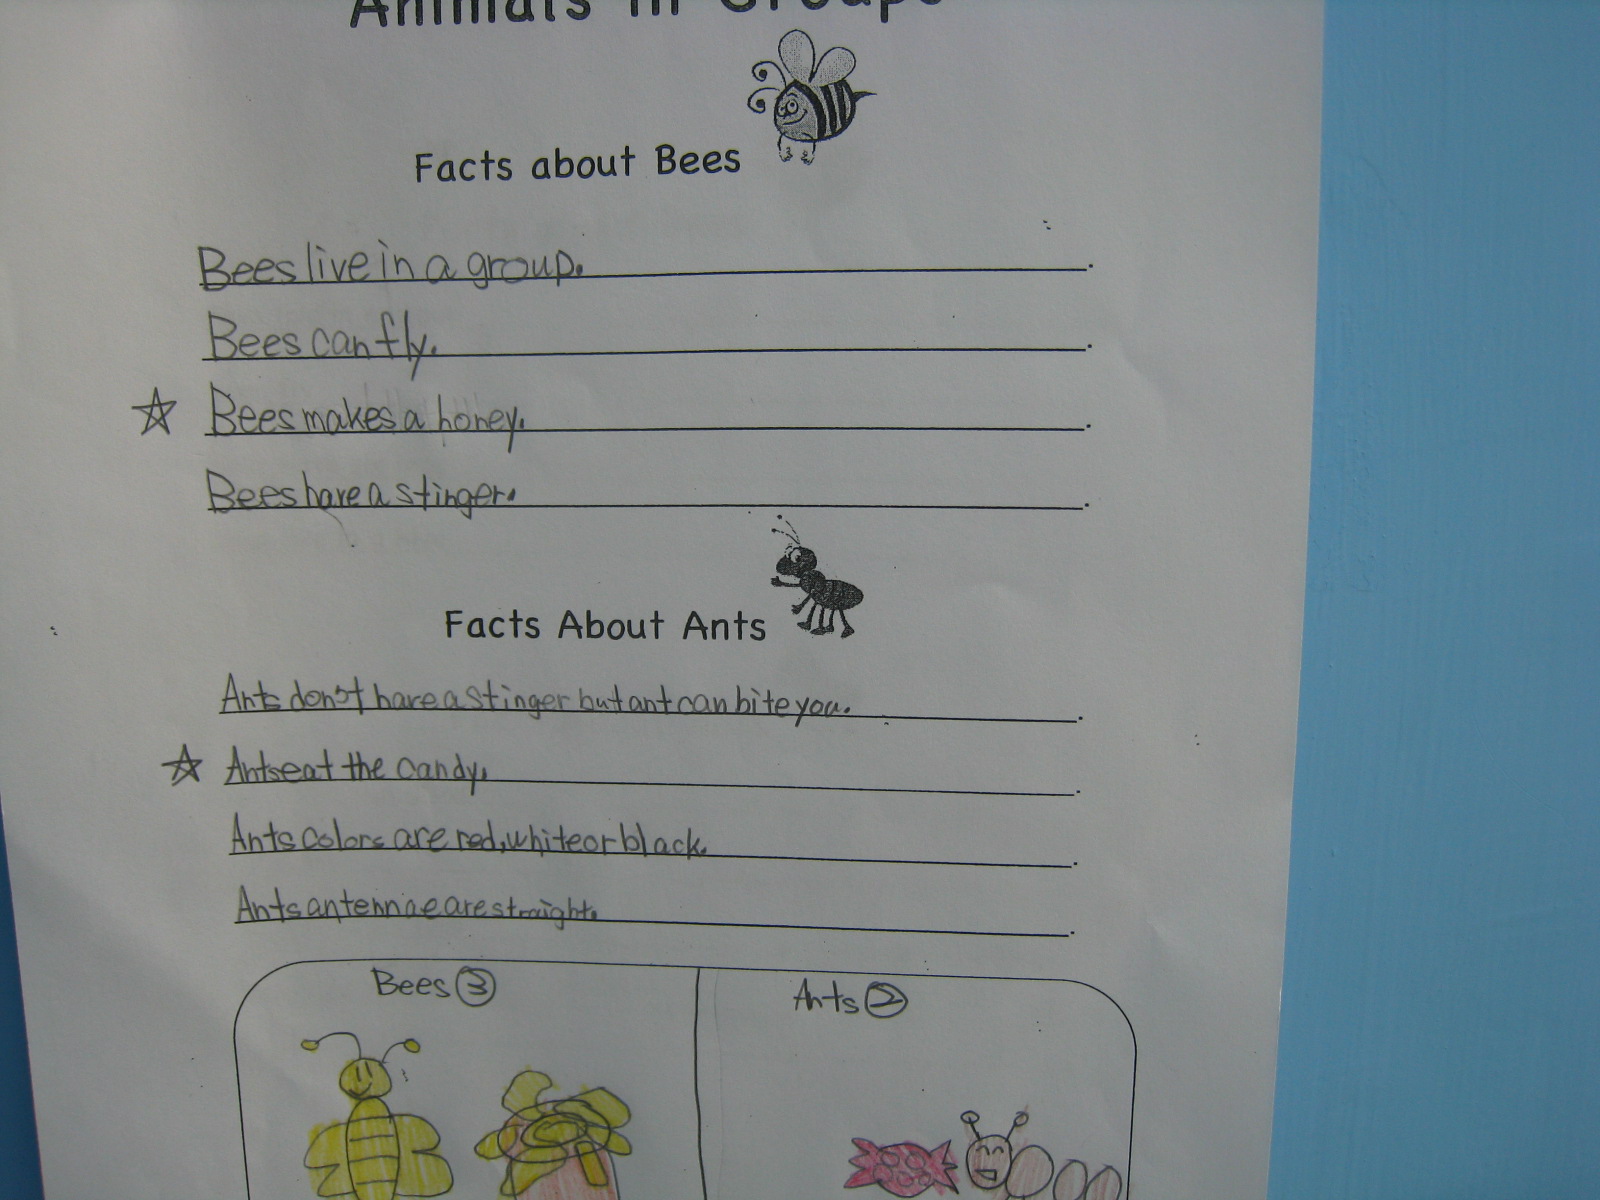 Animals in Groups
Facts about Bees
Bees live in a group.
Bees can fly.
Bees makes a honey.
Bees have a stinger.
Facts About Ants
Ants don't have a stinger but ant can bite you.
Ants eat the candy.
Ants colors are red, white or black.
Ants antennae are straight.
Bees ③
Ants ②